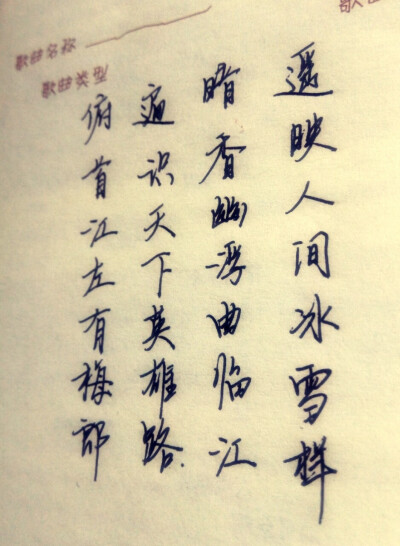 歌曲名称
歌曲类型
遥映人间冰雪样
暗香幽浮曲临江
遍识天下英雄路
俯首江左有梅郎